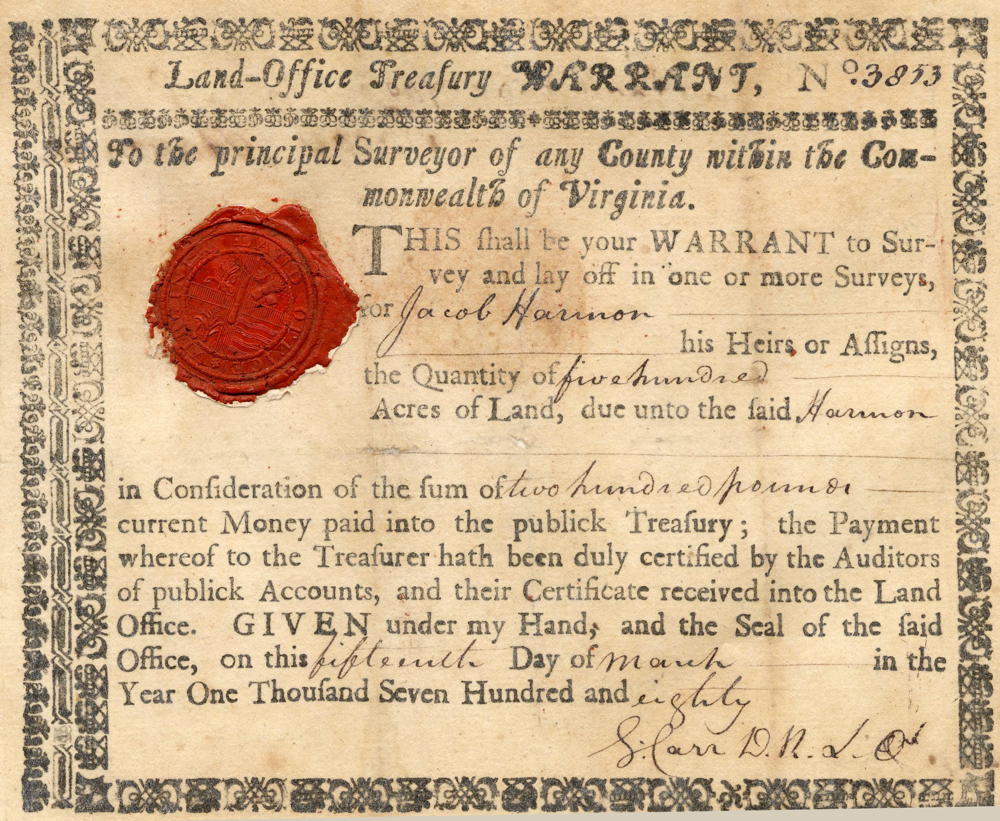 Land-Office Treaſury WARRANT, No. 3853
To the principal Surveyor of any County within the Com-
monwealth of Virginia.
THIS ſhall be your WARRANT to Sur-
vey and lay off in one or more Surveys,
for Jacob Harmon
his Heirs or Aſſigns,
the Quantity of five hundred
Acres of Land, due unto the ſaid Harmon
in Conſideration of the ſum of two hundred pounds
current Money paid into the publick Treaſury; the Payment
whereof to the Treaſurer hath been duly certified by the Auditors
of publick Accounts, and their Certificate received into the Land
Office. GIVEN under my Hand, and the Seal of the ſaid
Office, on this fifteenth Day of March in the
Year One Thouſand Seven Hundred and eighty
S. Carr D. R. L. Off